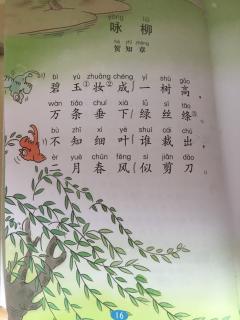 yǒng liǔ
咏 柳
hè zhī zhāng
贺知章
bì yù zhuāng chéng yí shù gāo
碧玉①妆②成一树高，
wàn tiáo chuí xià lǜ sī tāo
万条垂下绿丝绦③。
bù zhī xì yè shuí cái chū
不知细叶谁裁出，
èr yuè chūn fēng sì jiǎn dāo
二月春风似剪刀。
16